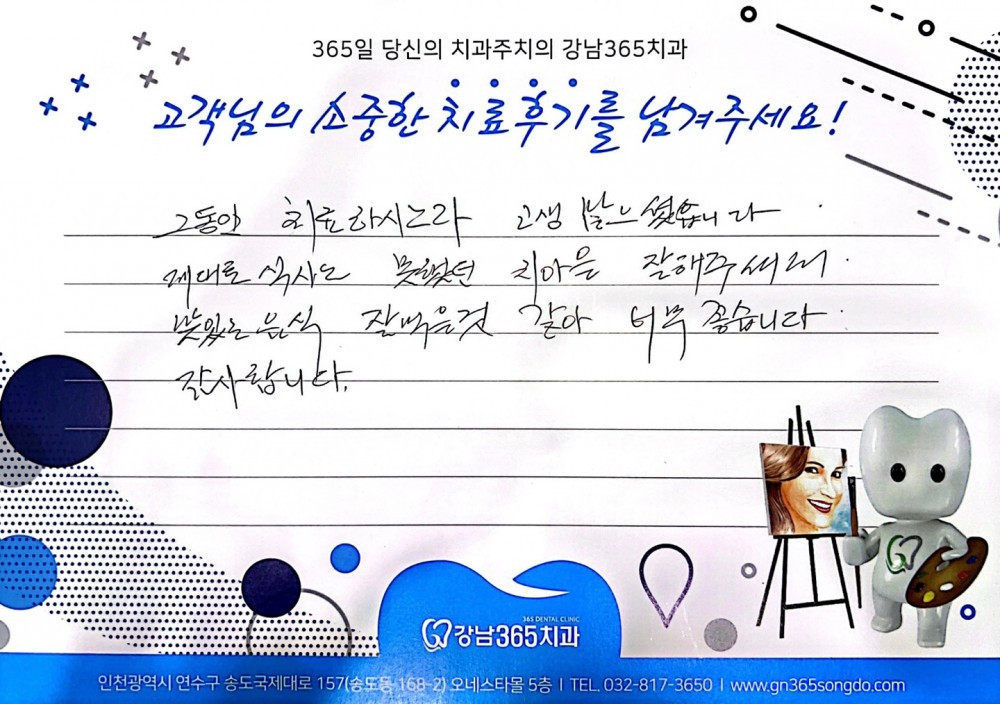 365일 당신의 치과주치의 강남365치과
고객님의 소중한 치료후기를 남겨주세요!
그동안 치료하시느라 고생 많으셨습니다
제대로 식사도 못했던 치아을 잘해주셔서
맛있는 음식 잘먹을것 같아 너무 좋습니다
감사합니다.
365 DENTAL CLINIC
강남365치과
인천광역시 연수구 송도국제대로 157(송도동 168-2) 오네스타몰 5층 | TEL. 032-817-3650 | www.gn365songdo.com